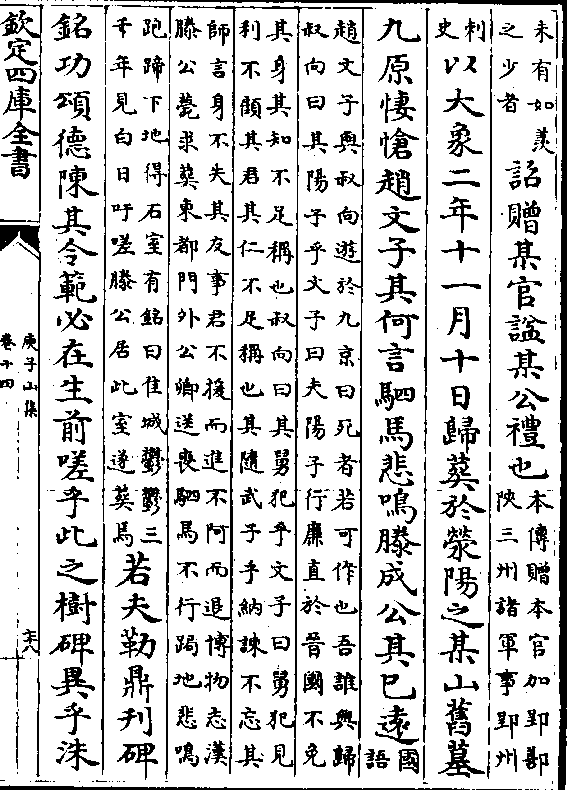 未有如羨
之少者
詔贈某官諡某公禮也
本傳贈本官加郢鄀
陜三州諸軍事郢州
刺
史
以大象二年十一月十日歸葬於滎陽之某山舊墓
九原悽愴趙文子其何言駟馬悲鳴滕成公其已遠
國
語
趙文子與叔向遊於九京曰死者若可作也吾誰與歸
叔向曰其陽子乎文子曰夫陽子行廉直於晉國不免
其身其知不足稱也叔向曰其舅犯乎文子曰舅犯見
利不顧其君其仁不足稱也其隨武子乎納諫不忘其
師言身不失其友事君不援而進不阿而退博物志漢
滕公薨求葬東都門外公卿送喪駟馬不行跼地悲鳴
跑蹄下地得石室有銘曰佳城鬱鬱三
千年見白日吁嗟滕公居此室遂葬焉
若夫勒鼎刋碑
銘功頌德陳其令範必在生前嗟乎此之樹碑異乎洙
欽定四庫全書
庾子山集
卷十四